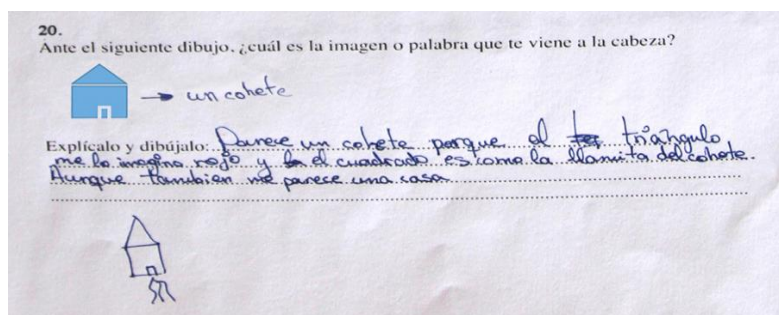 20.
Ante el siguiente dibujo, ¿cuál es la imagen o palabra que te viene a la cabeza?
→ un cohete
Explícalo y dibújalo: Parece un cohete porque el triángulo
me lo imagino rojo y el cuadrado es como la llamita del cohete.
Aunque tambien me parece una casa